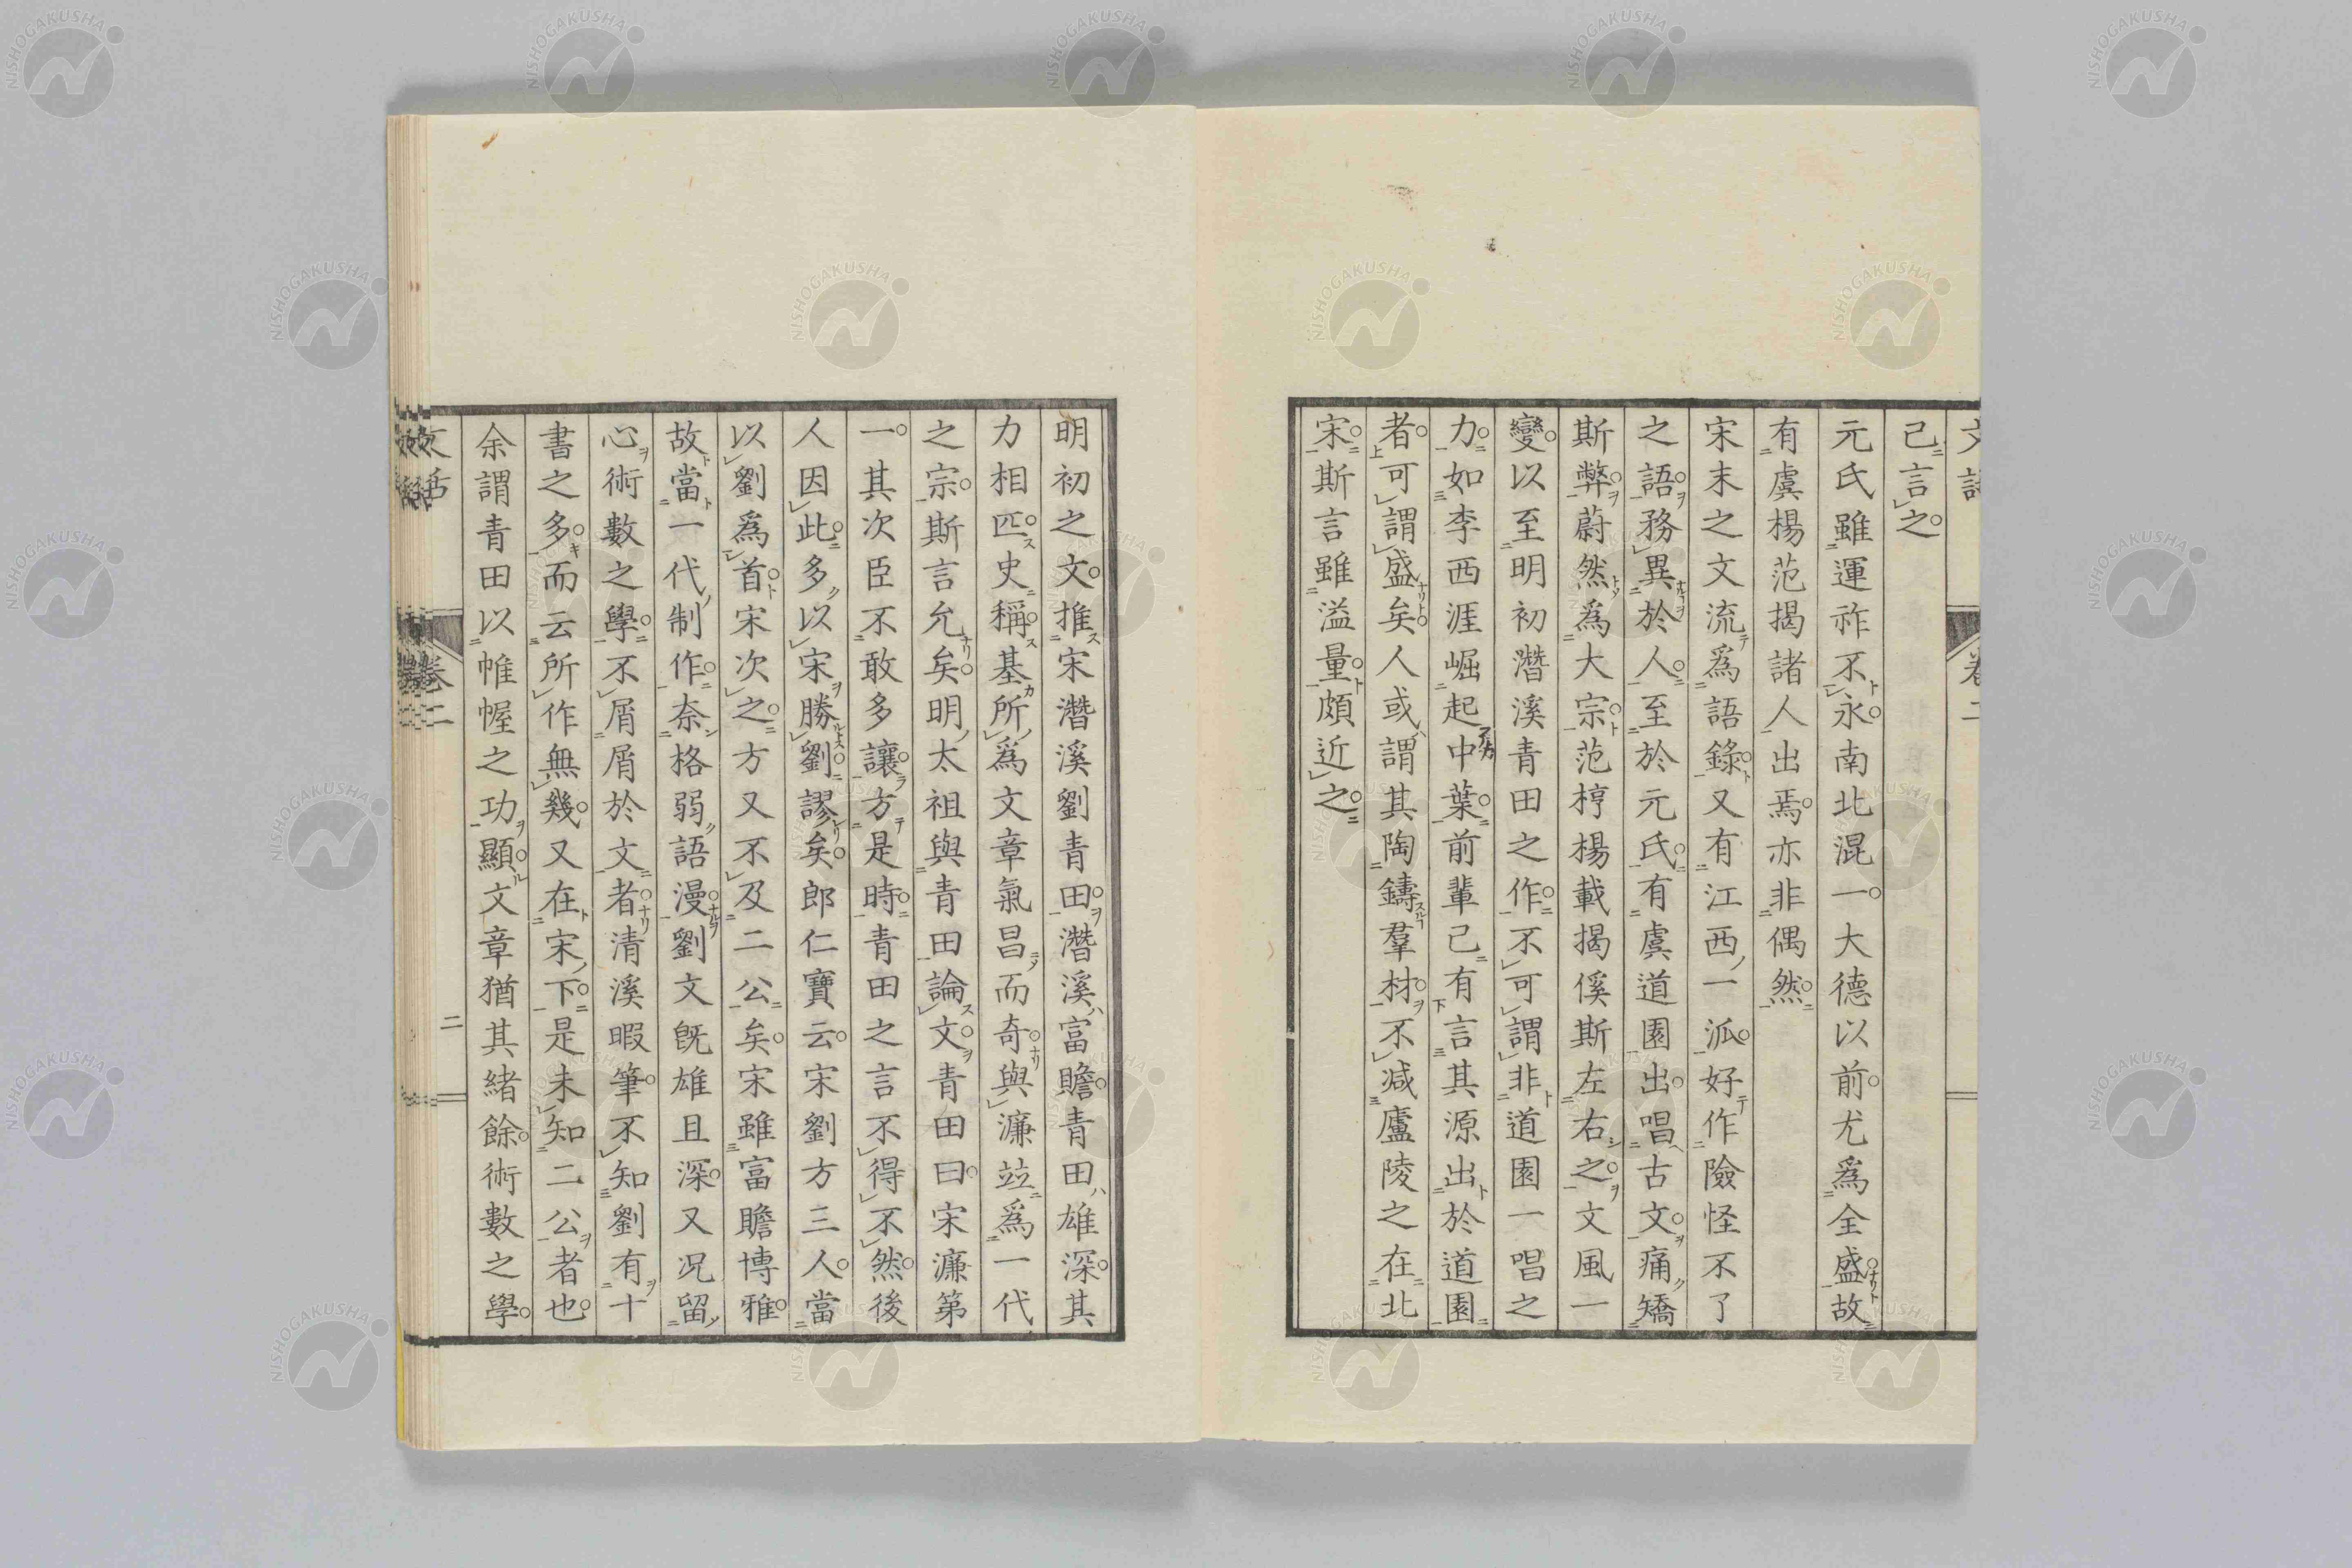 己言之
元氏雖運祚不永南北混一大德以前尤爲全盛故
有虞楊范揭諸人出焉亦非偶然
宋末之文流爲語錄又有江西一派好作險怪不了
之語務異於人至於元氏有虞道園出唱古文痛矯
斯弊蔚然爲大宗范梈楊載揭傒斯左右之文風一
變以至明初潛溪青田之作不可謂非道園一唱之
力如李西涯崛起中葉前輩已有言其源出於道園
者可謂盛矣人或謂其陶鑄羣材不减廬陵之在北
宋斯言雖溢量頗近之
明初之文推宋潛溪劉青田潛溪富贍青田雄深其
力相匹史稱基所爲文章氣昌而奇與濂竝爲一代
之宗斯言允矣明太祖與青田論文青田曰宋濂第
一其次臣不敢多讓方是時青田之言不得不然後
人因此多以宋勝劉謬矣郎仁寶云宋劉方三人當
以劉爲首宋次之方又不及二公矣宋雖富贍博雅
故當一代制作奈格弱語漫劉文既雄且深又况留
心術數之學不屑屑於文者清溪暇筆不知劉有十
書之多而云所作無幾又在宋下是未知二公者也
余謂青田以帷幄之功顯文章猶其緒餘術數之學
文話
卷二
二
NISHOGAKUSHA